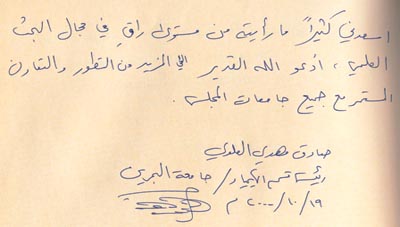 اسعدني كثيراً ما رأيته من مستوى راقٍ في مجال البحث
العلمي ، أدعو الله القدير الى المزيد من التطور والتعاون
المستمر مع جميع جامعات المجلس .
صادق مهدي العلوي
رئيس قسم الكيمياء / جامعة البحرين
١٩ / ١٠ / ٢٠٠٠ م